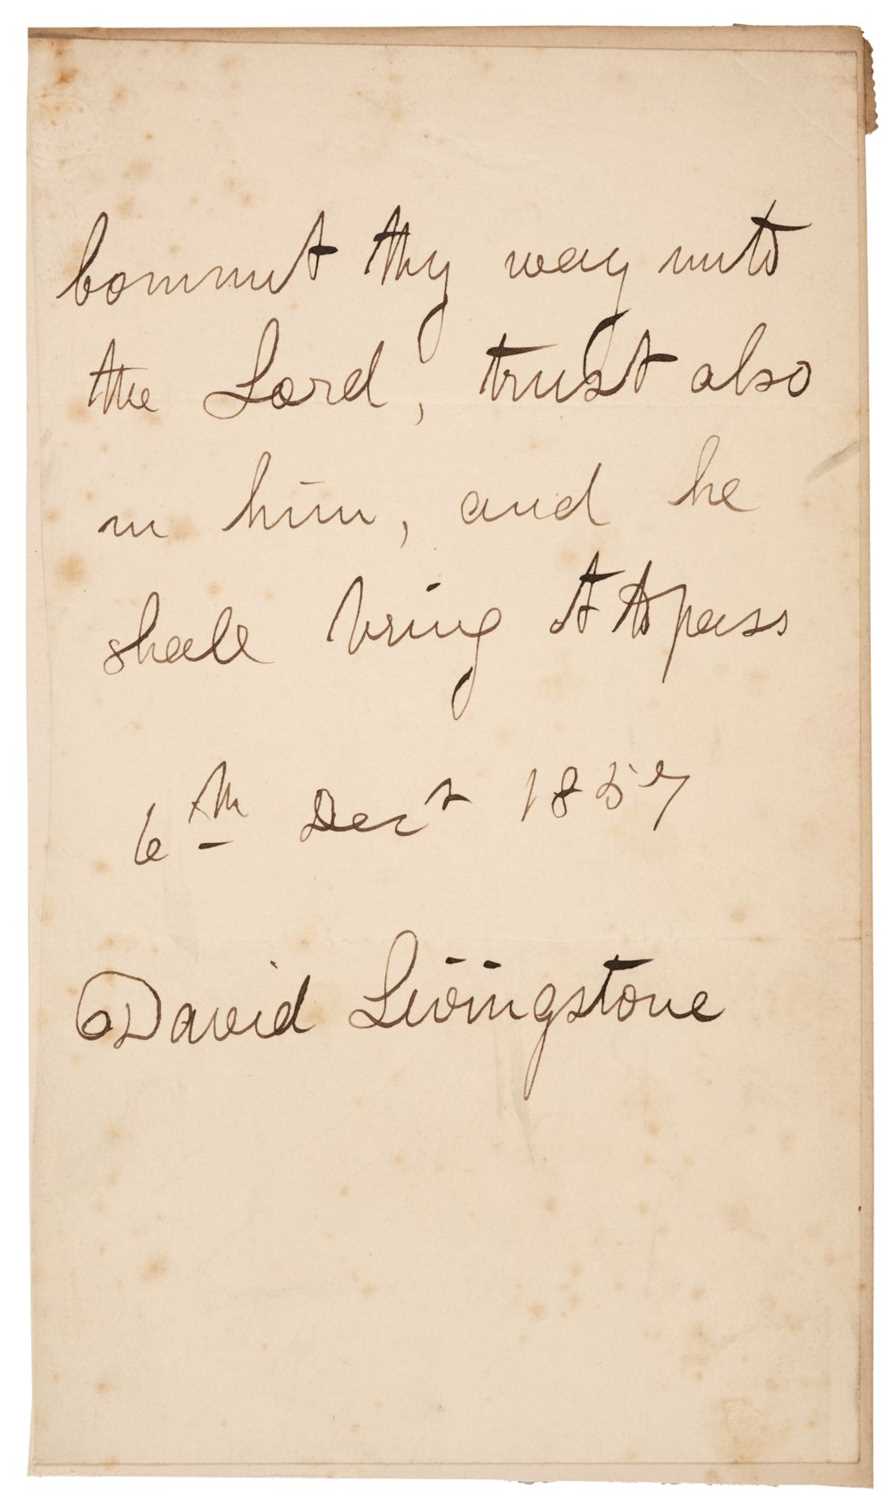 Commit thy way unto
the Lord, trust also
in him, and he
shall bring it to pass
6th Decr 1857
David Livingstone